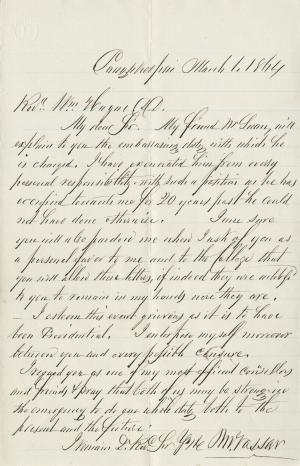 Poughkeepsie March 1. 1864
Revd. Wm Hague D.D.
My dear Sir. My friend Mr Swan, will
explain to you the embarrassing duty with which he
is charged. I have exonerated him from every
personal responsibility with such a position as he has
occupied towards me for 20 years past he could
not have done otherwise. I am sure
you will also pardon me when I ask of you as
a personal favor to me and to the College that
you will allow these letters, if indeed they are addressed
to you to remain in my hands now they are.
I esteem this event grievous as it is to have
been Providential. I interpose myself moreover
between you and every possible censure.
I regard you as one of my most efficient Councillors
and friends & pray that both of us may be strong in
the emergency to do our whole duty both to the
present and the future.
I remain Dr Sir Yours M Vassar